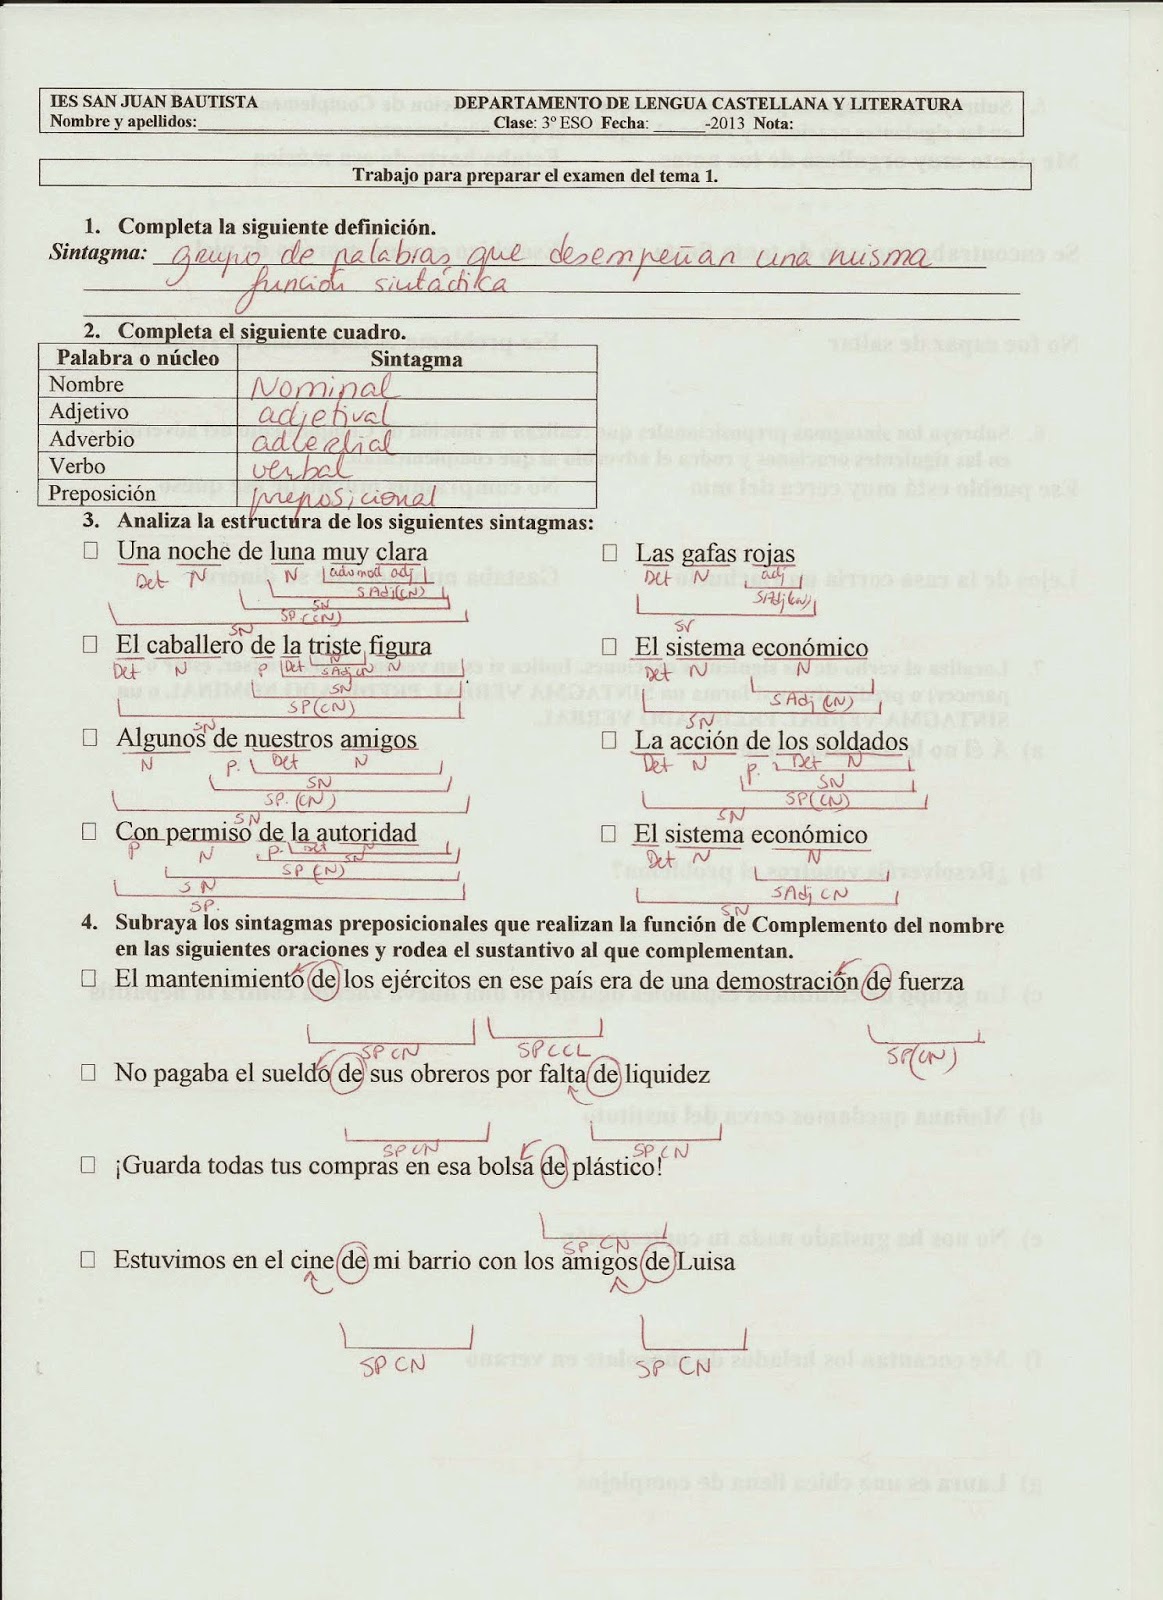 IES SAN JUAN BAUTISTA DEPARTAMENTO DE LENGUA CASTELLANA Y LITERATURA
Nombre y apellidos: Clase: 3º ESO Fecha: -2013 Nota:
Trabajo para preparar el examen del tema 1.
1. Completa la siguiente definición.
Sintagma: grupo de palabras que desempeñan una misma
función sintáctica
2. Completa el siguiente cuadro.
Palabra o núcleo Sintagma
Nombre Nominal
Adjetivo adjetival
Adverbio adverbial
Verbo verbal
Preposición preposicional
3. Analiza la estructura de los siguientes sintagmas:
Una noche de luna muy clara Las gafas rojas
Det N N adv mod adj Det N adj
S Adj (CN) S Adj (CN)
SN
SP (CN)
SN SN
El caballero de la triste figura El sistema económico
Det N P Det N N Det N N
S Adj CN
SN S Adj (CN)
SP (CN) SN
SN
Algunos de nuestros amigos La acción de los soldados
N P. Det N Det N P. Det N
SN SN
SP. (CN) SP (CN)
SN SN
Con permiso de la autoridad El sistema económico
P N P. Det N Det N N
SN
SP (CN)
SN S Adj CN
SP. SN
4. Subraya los sintagmas preposicionales que realizan la función de Complemento del nombre
en las siguientes oraciones y rodea el sustantivo al que complementan.
El mantenimiento de los ejércitos en ese país era de una demostración de fuerza
SP CN SP CCL SP (CN)
No pagaba el sueldo de sus obreros por falta de liquidez
SP CN SP CN
¡Guarda todas tus compras en esa bolsa de plástico!
SP CN
Estuvimos en el cine de mi barrio con los amigos de Luisa
SP CN SP CN